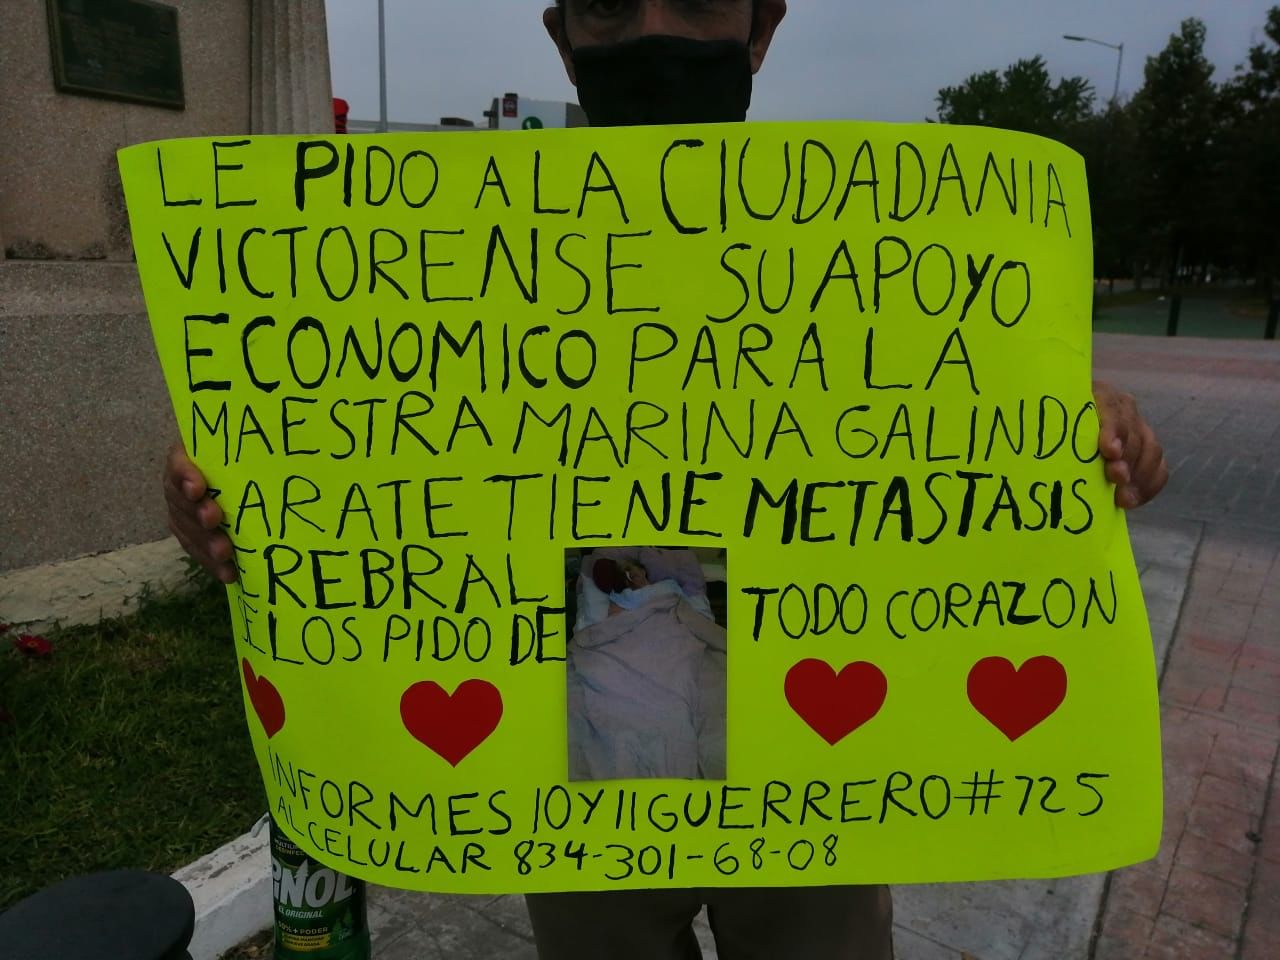 LE PIDO A LA CIUDADANIA
VICTORENSE SU APOYO
ECONOMICO PARA LA
MAESTRA MARINA GALINDO
ZARATE TIENE METASTASIS
EREBRAL
SE LOS PIDO DE TODO CORAZON
INFORMES 10 Y 11 GUERRERO #725
AL CELULAR 834-301-68-08
PINOL
EL ORIGINAL